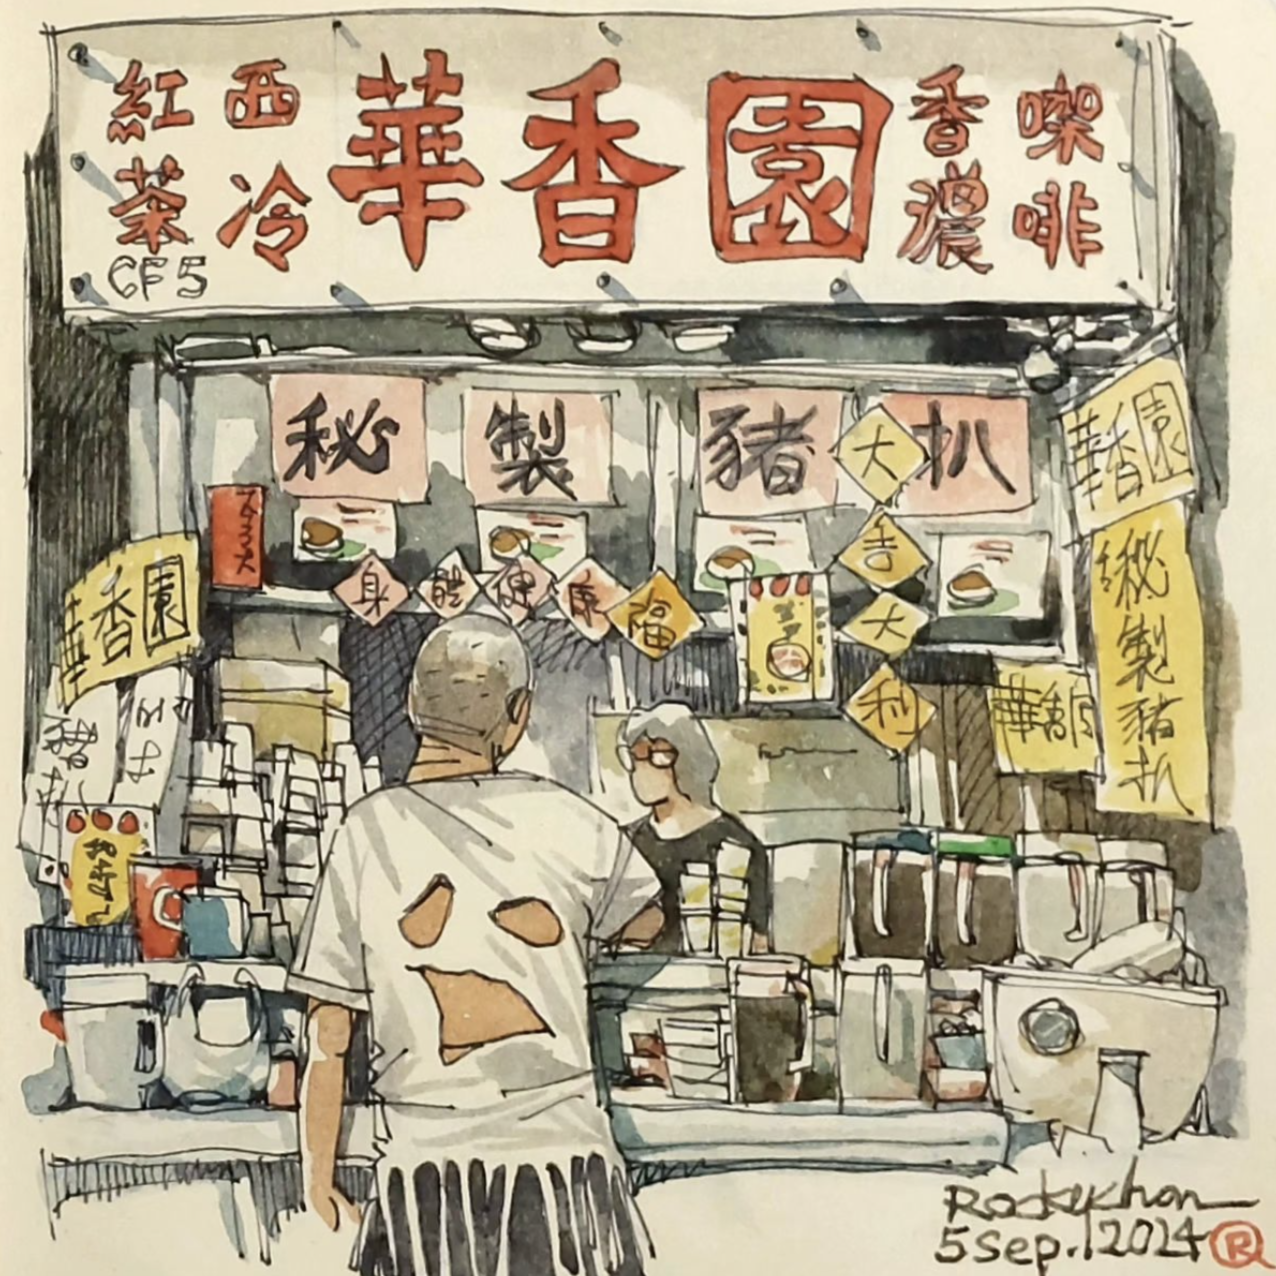 紅茶
西冷
華香園
香濃
㗎啡
CF5
秘製豬扒
大吉大利
身體健康
福
華香園
華香園
秘製豬扒
Rockykhan
5 Sep. 2024
R